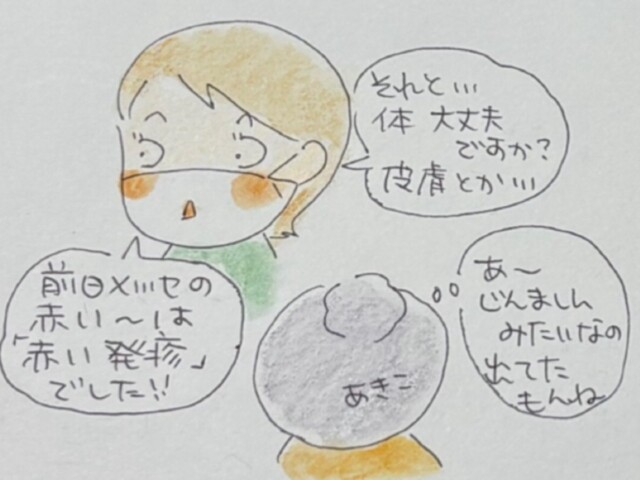 それと…
体 大丈夫
ですか?
皮膚とか…
前日メッセの
赤い〜は
「赤い発疹」
でした!!
あ〜
じんましん
みたいなの
出てた
もんね
あきこ